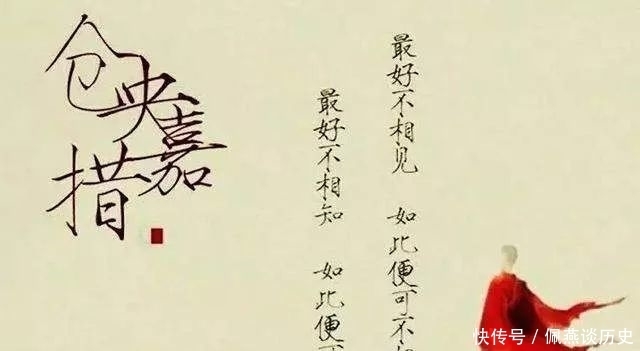 仓央嘉措
最好不相见 如此便可不
最好不相知 如此便可
快传号 / 佩燕谈历史